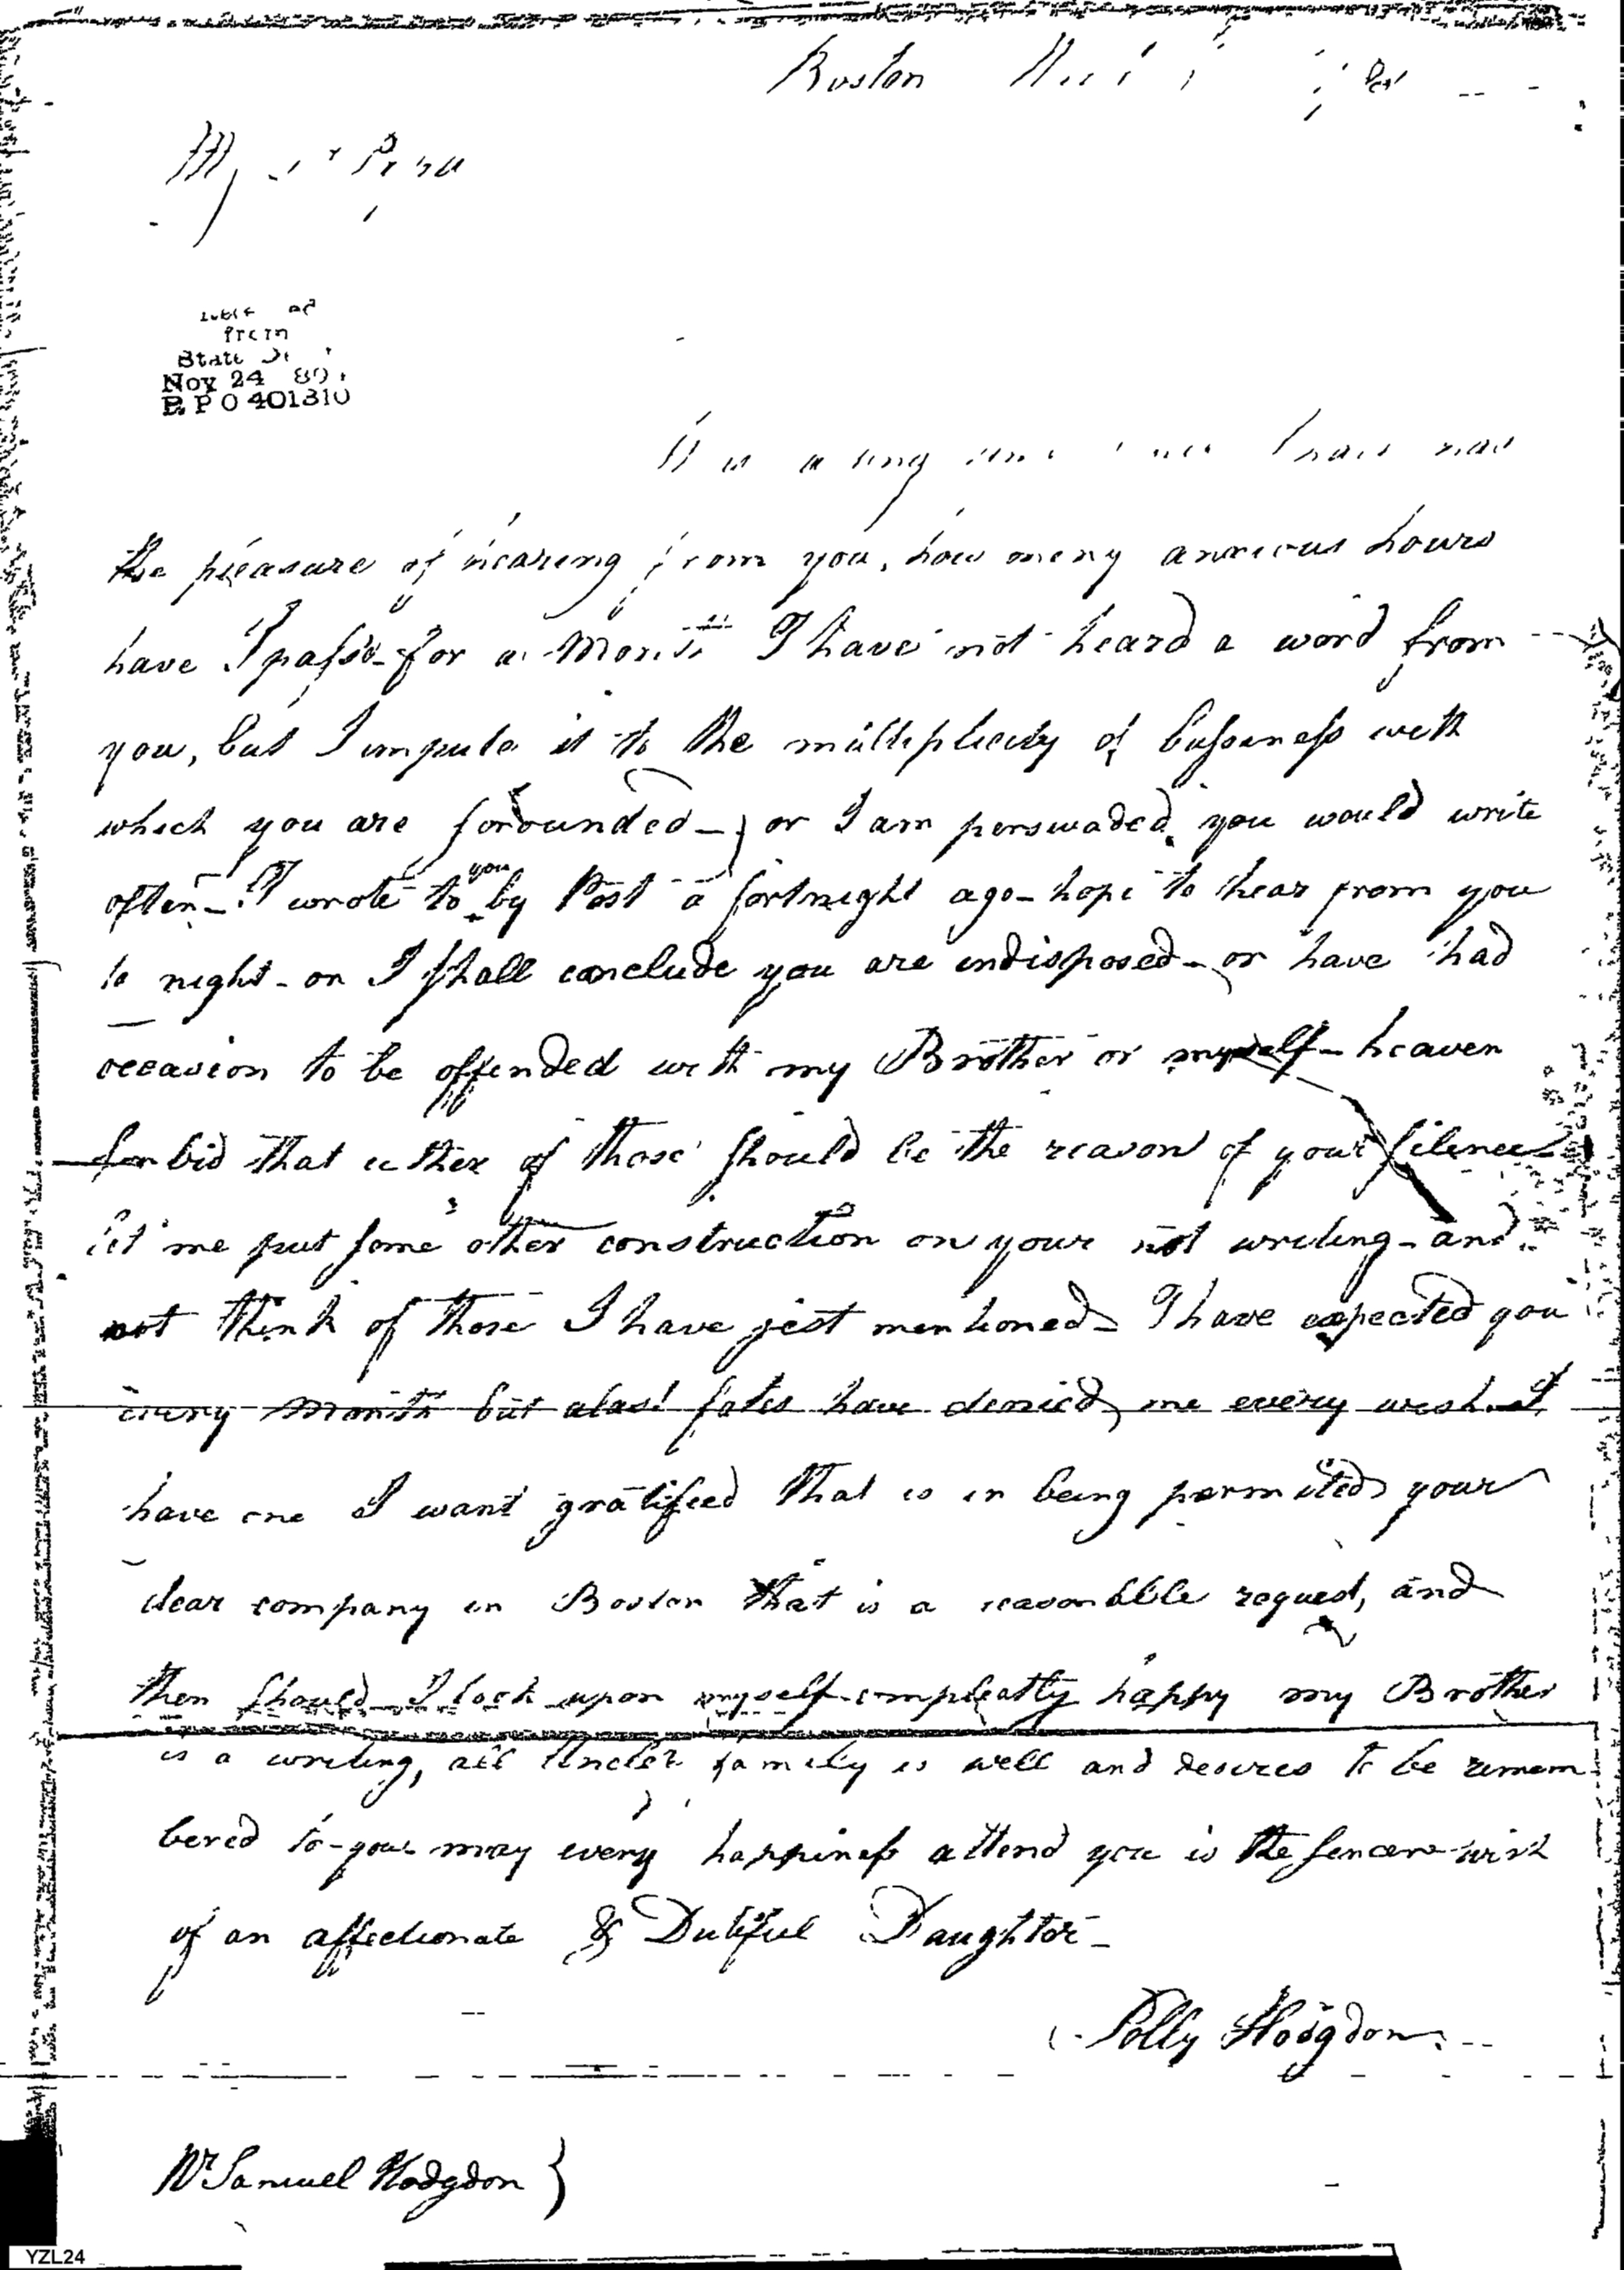 Boston
My Papa
from
State
Nov 24
P P O 401310
It is a long since I have had
the pleasure of hearing from you, how meny anxious hours
have I passd for a Month I have not heard a word from
you, but I impute it to the multiplicity of bussiness with
which you are sorounded - or I am perswaded you would write
often - I wrote to you by Post a fortnight ago - hope to hear from you
to night - or I shall conclude you are indisposed - or have had
occasion to be offended with my Brother or myself - heaven
forbid that either of those should be the reason of your silence
let me put some other construction on your not writing - and
not think of those I have jest mentioned - I have expected you
every Month but alas! fates have denied me every wish. I
have one I want gratified that is in being permited your
dear company in Boston that is a reasonable request, and
then should I look upon myself compleatly happy my Brother
is a writing, all Uncles family is well and desires to be remem
bered to you may every happiness attend you is the sincere wish
of an affectionate & Dutiful Daughter -
Polly Hodgdon
Mr Samuel Hodgdon }
YZL24